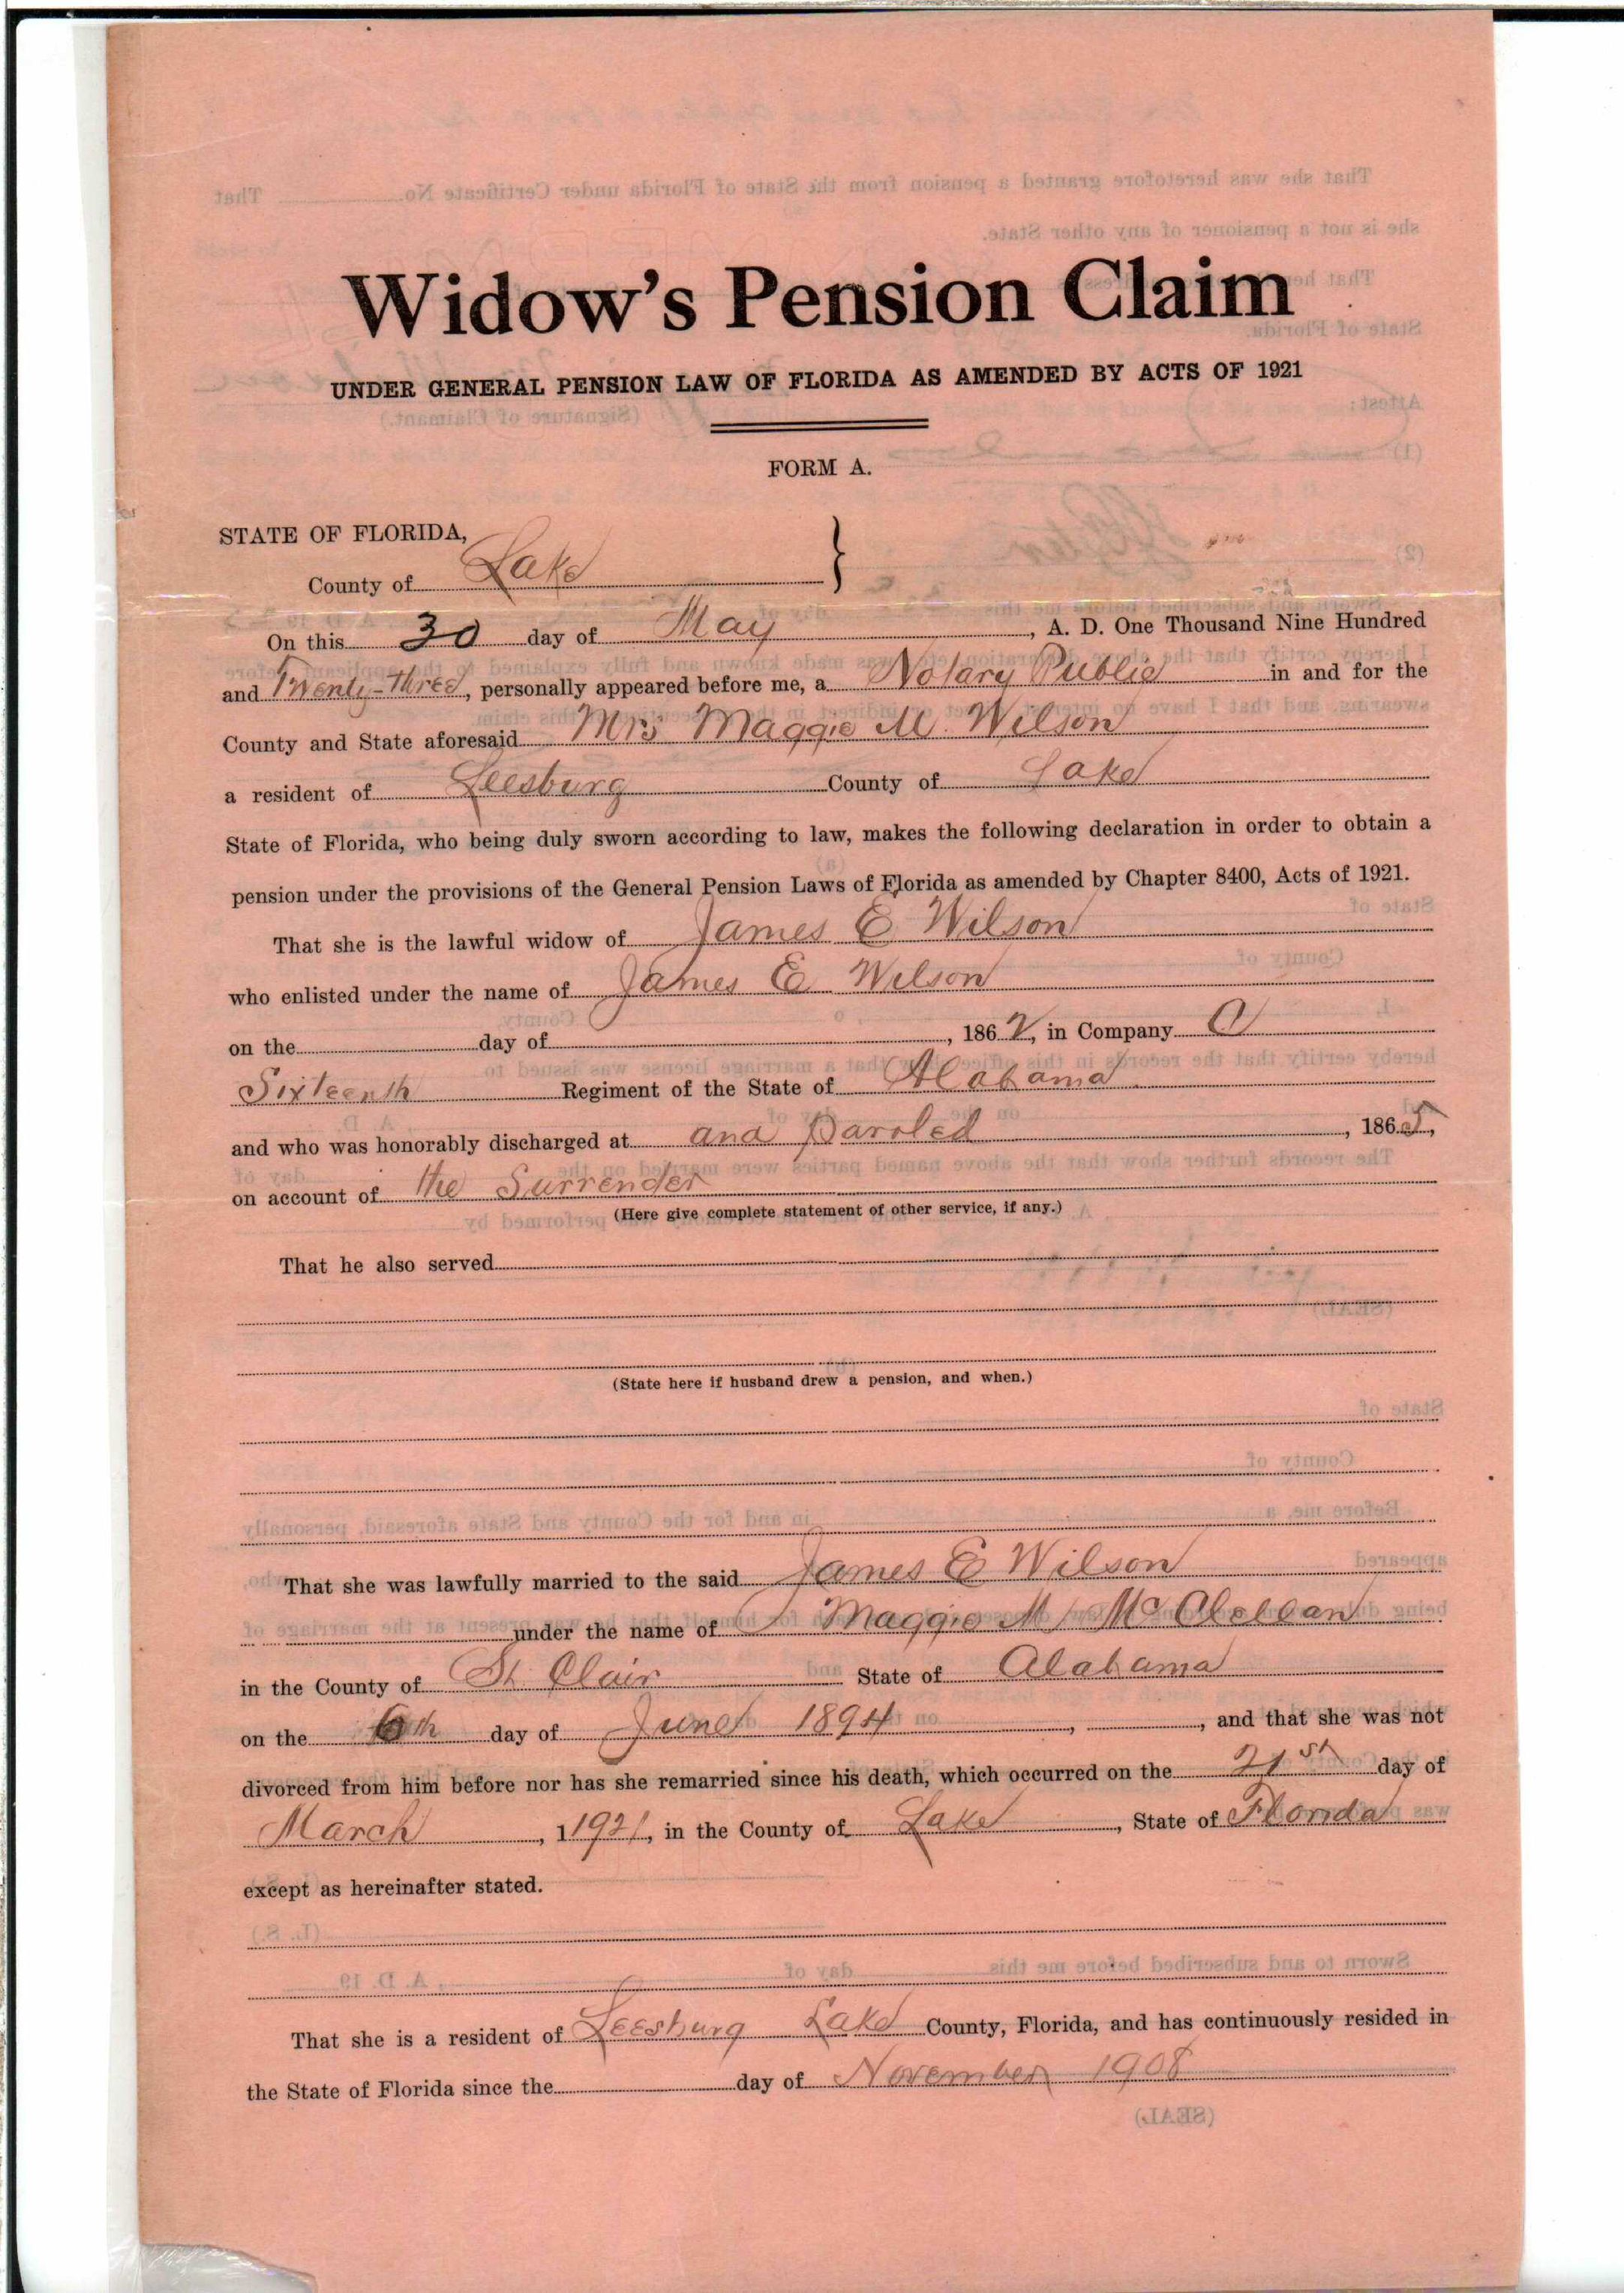 Widow's Pension Claim
UNDER GENERAL PENSION LAW OF FLORIDA AS AMENDED BY ACTS OF 1921
FORM A.
STATE OF FLORIDA,
County of Lake }
On this 30 day of May, A. D. One Thousand Nine Hundred
and Twenty-Three, personally appeared before me, a Notary Public in and for the
County and State aforesaid Mrs Maggie M. Wilson
a resident of Leesburg County of Lake
State of Florida, who being duly sworn according to law, makes the following declaration in order to obtain a
pension under the provisions of the General Pension Laws of Florida as amended by Chapter 8400, Acts of 1921.
That she is the lawful widow of James E Wilson
who enlisted under the name of James E Wilson
on the day of , 1862, in Company
Sixteenth Regiment of the State of Alabama
and who was honorably discharged at and Paroled, 1865,
on account of the Surrender
(Here give complete statement of other service, if any.)
That he also served
(State here if husband drew a pension, and when.)
That she was lawfully married to the said James E Wilson
under the name of Maggie M McClellan
in the County of St. Clair State of Alabama
on the 6th day of June 1894, , and that she was not
divorced from him before nor has she remarried since his death, which occurred on the 21st day of
March, 11921, in the County of Lake, State of Florida
except as hereinafter stated.
That she is a resident of Leesburg Lake County, Florida, and has continuously resided in
the State of Florida since the day of November 1908